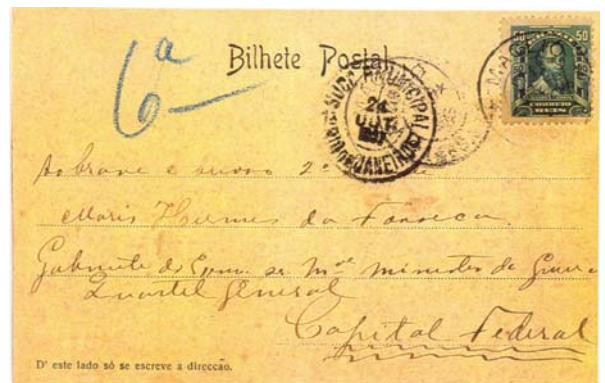 6ª
Bilhete Postal.
50 50
CORREIO
REIS
SUCC. MUNICIPAL
24
OUT
RIO DE JANEIRO
Ao bravo e 2º
Maris Hermes da Fonseca.
Gabinete do Exmo. sr. Mal ministro da Guerra
Quartel General
Capital Federal
D' este lado só se escreve a direcção.